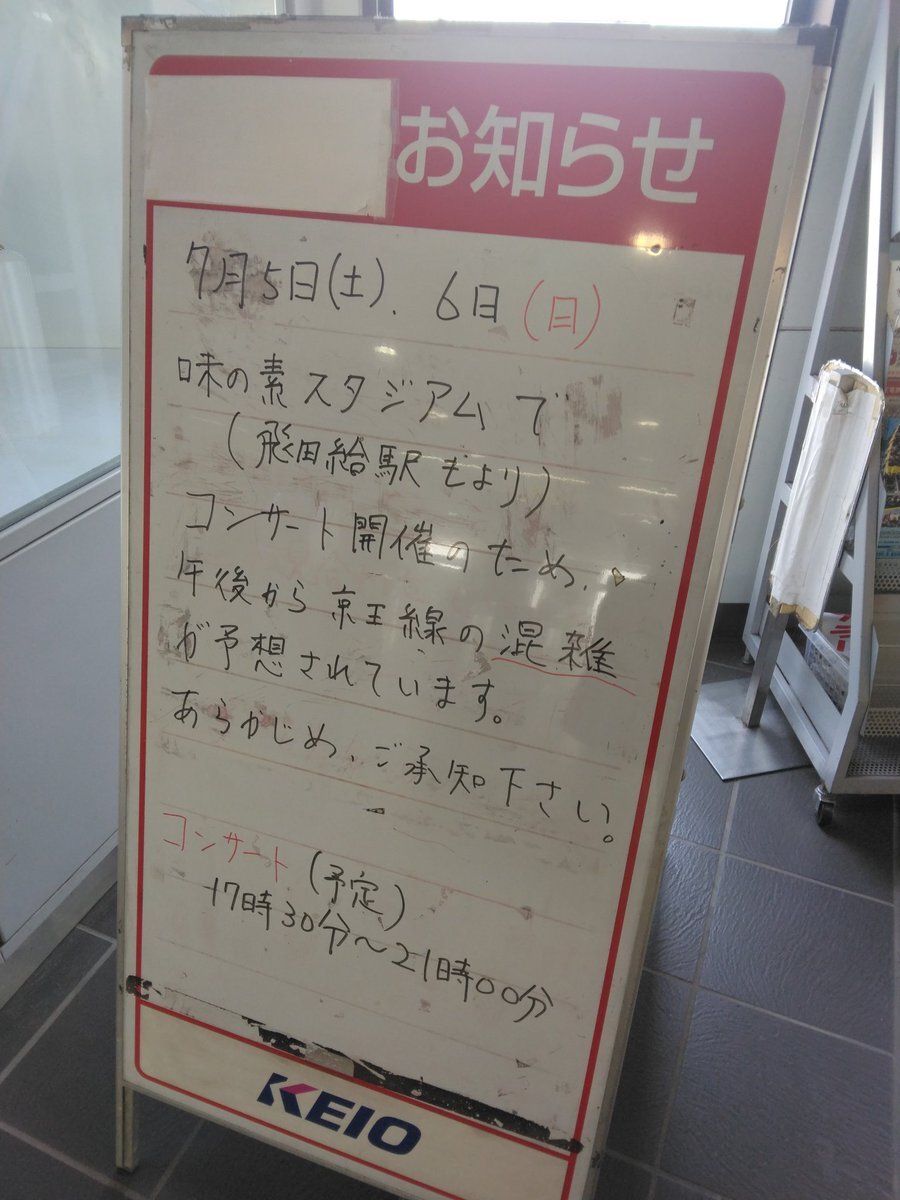 お知らせ
7月5日(土). 6日(日)
味の素スタジアムで
(飛田給駅もより)
コンサート開催のため、
午後から京王線の混雑
が予想されています。
あらかじめ、ご承知下さい。
コンサート(予定)
17時30分〜21時00分
KEIO